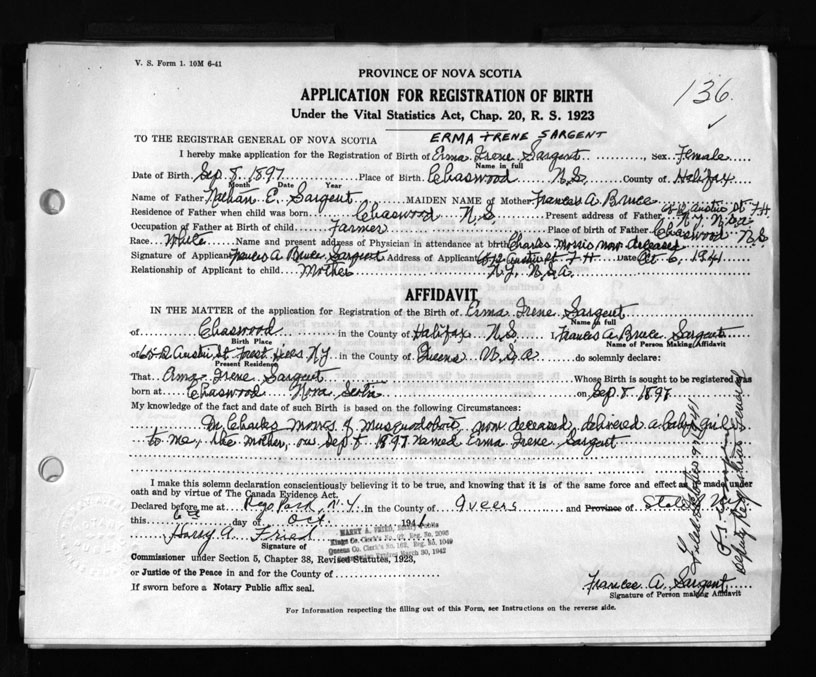 V. S. Form 1. 10M 6-41
PROVINCE OF NOVA SCOTIA
136.
APPLICATION FOR REGISTRATION OF BIRTH
Under the Vital Statistics Act, Chap. 20, R. S. 1923
ERMA IRENE SARGENT
TO THE REGISTRAR GENERAL OF NOVA SCOTIA
I hereby make application for the Registration of Birth of Erma Irene Sargent, Sex Female
Name in full
Date of Birth Sep. 8. 1897 Place of Birth Chaswood N.S. County of Halifax
Month Date Year
Name of Father Nathan E. Sargent MAIDEN NAME of Mother Frances A Bruce
Residence of Father when child was born Chaswood N.S. Present address of Father Austin St. F.H. N.Y. U.S.A.
Occupation of Father at Birth of child Farmer Place of birth of Father Chaswood N.S.
Race White Name and present address of Physician in attendance at birth Charles Morris now deceased
Signature of Applicant Frances A Bruce Sargent Address of Applicant Austin St. F.H. Date Oct 6, 1941
Relationship of Applicant to child Mother N.Y. U.S.A.
AFFIDAVIT
IN THE MATTER of the application for Registration of the Birth of Erma Irene Sargent
Name in full
of Chaswood in the County of Halifax N.S. I, Frances A. Bruce Sargent
Birth Place Name of Person Making Affidavit
of Austin St Forest Hills N.Y. in the County of Queens U.S.A. do solemnly declare:
Present Residence
That Erma Irene Sargent Whose Birth is sought to be registered was
born at Chaswood Nova Scotia on Sep. 8. 1897
My knowledge of the fact and date of such Birth is based on the following Circumstances:
Dr. Charles Morris of Musquodoboit, now deceased, delivered a baby girl
to me, the mother, on Sept 8 1897 named Erma Irene Sargent
I make this solemn declaration conscientiously believing it to be true, and knowing that it is of the same force and effect as if made under
oath and by virtue of The Canada Evidence Act.
Declared before me at Rego Park, N.Y. in the County of Queens and Province of State of N.Y.
this 6th day of Oct. 1941
Harry A. Fried
HARRY A. FRIED, Notary Public
Kings Co. Clerk's No. Reg. No.
Queens Co. Clerk's No. 162, Reg. No. 1049
Commission Expires March 30, 1942
Signature of
Commissioner under Section 5, Chapter 38, Revised Statutes, 1923,
or Justice of the Peace in and for the County of
If sworn before a Notary Public affix seal.
Frances A. Sargent
Signature of Person making Affidavit
For Information respecting the filling out of this Form, see Instructions on the reverse side.
Deputy Registrar General